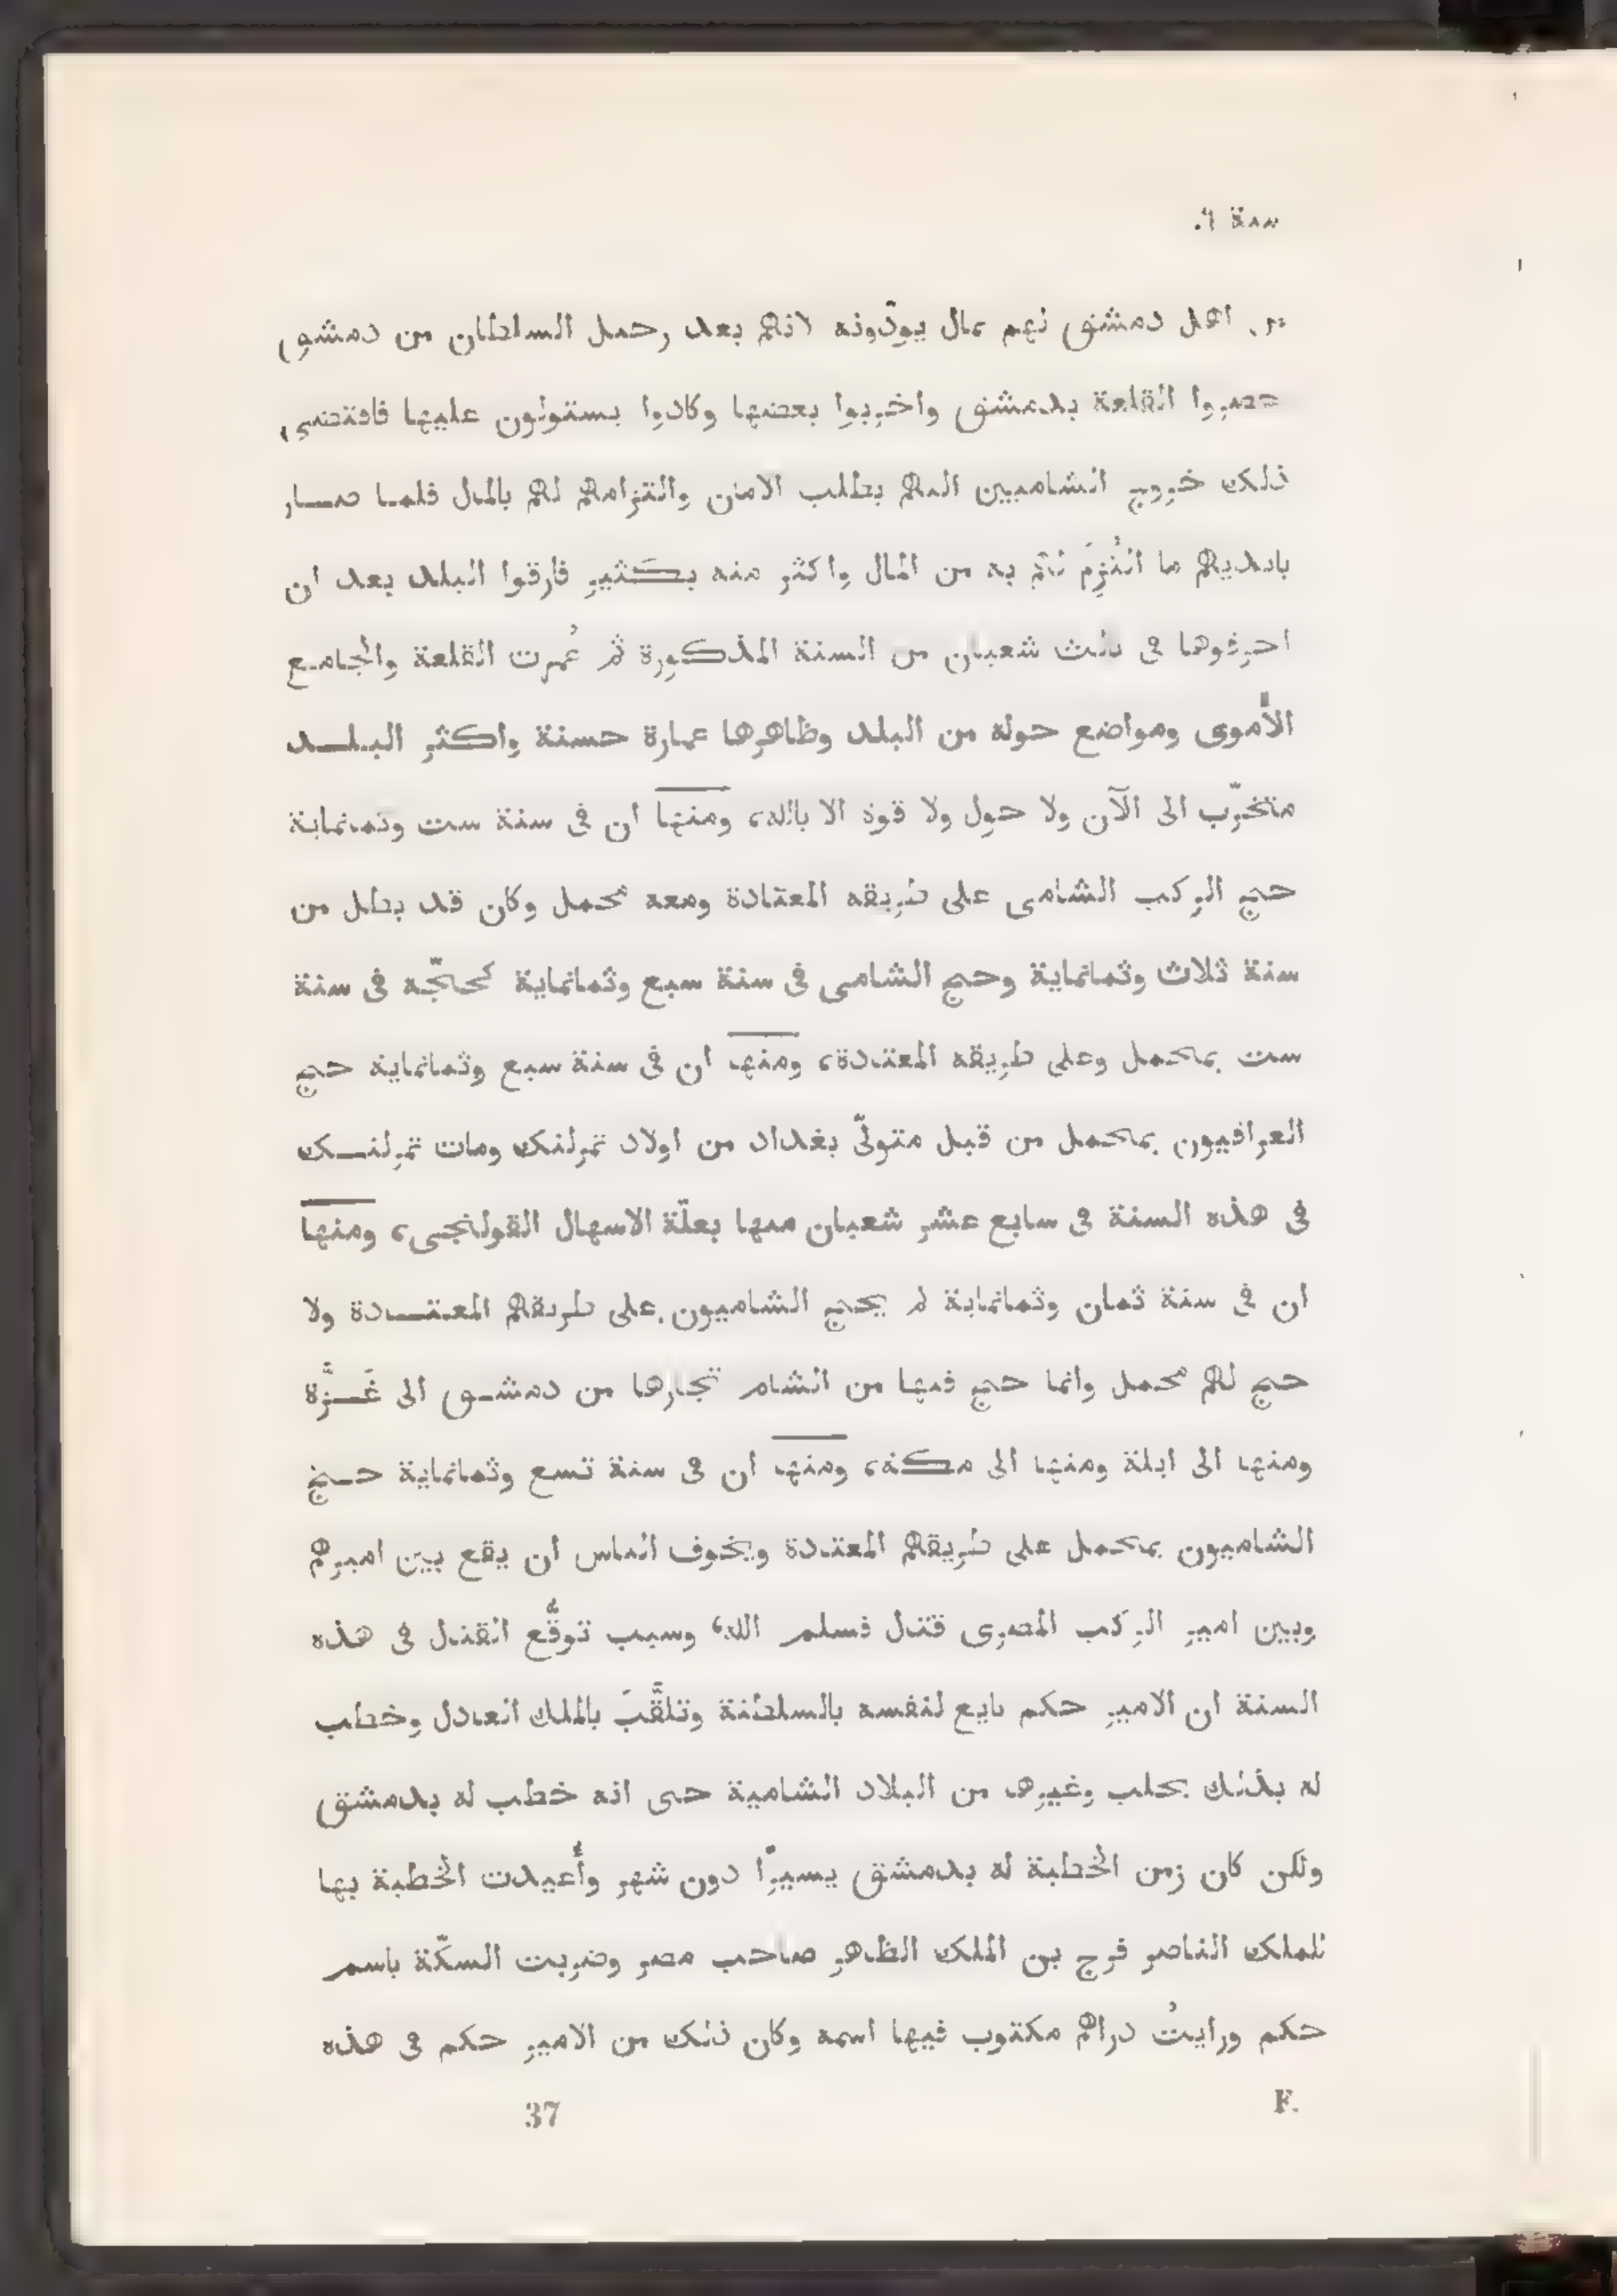 سنة ٩.
من اهل دمشق لهم بمال يودّونه لانهم بعد رحيل السلطان من دمشق
حصروا القلعة بدمشق واخربوا بعضها وكادوا يستولون عليها فاقتضى
ذلك خروج الشاميين اليهم بطلب الامان والتزامهم لهم بالمال فلما صار
بايديهم ما التُزِمَ لهم به من المال واكثر منه بكثير فارقوا البلد بعد ان
احرقوها فى ثالث شعبان من السنة المذكورة ثم عُمرت القلعة والجامع
الأموى ومواضع حوله من البلد وظاهرها عمارة حسنة واكثر البلد
متخرّب الى الآن ولا حول ولا قوة الا بالله، ومنها ان فى سنة ست وثمانماية
حج الركب الشامى على طريقه المعتادة ومعه محمل وكان قد بطل من
سنة ثلاث وثمانماية وحج الشامى فى سنة سبع وثمانماية كحجّه فى سنة
ست بمحمل وعلى طريقه المعتادة، ومنها ان فى سنة سبع وثمانماية حج
العراقيون بمحمل من قبل متولّى بغداد من اولاد تمرلنك ومات تمرلنك
فى هذه السنة فى سابع عشر شعبان منها بعلّة الاسهال القولنجى، ومنها
ان فى سنة ثمان وثمانماية لم يحج الشاميون على طريقهم المعتادة ولا
حج لهم محمل وانما حج فيها من الشام تجارها من دمشق الى غَزَّة
ومنها الى ايلة ومنها الى مكة، ومنها ان فى سنة تسع وثمانماية حج
الشاميون بمحمل على طريقهم المعتادة وبخوف الناس ان يقع بين اميرهم
وبين امير الركب المصرى قتال فسلم الله، وسبب توقُّع القتال فى هذه
السنة ان الامير حكم بايع لنفسه بالسلطنة وتلقَّبَ بالملك العادل وخطب
له بذلك بحلب وغيرها من البلاد الشامية حتى انه خطب له بدمشق
ولكن كان زمن الخطبة له بدمشق يسيرًا دون شهر وأُعيدت الخطبة بها
للملك الناصر فرج بن الملك الظاهر صاحب مصر وضربت السكّة باسم
حكم ورايتُ دراهم مكتوب فيها اسمه وكان ذلك من الامير حكم فى هذه
F. 37